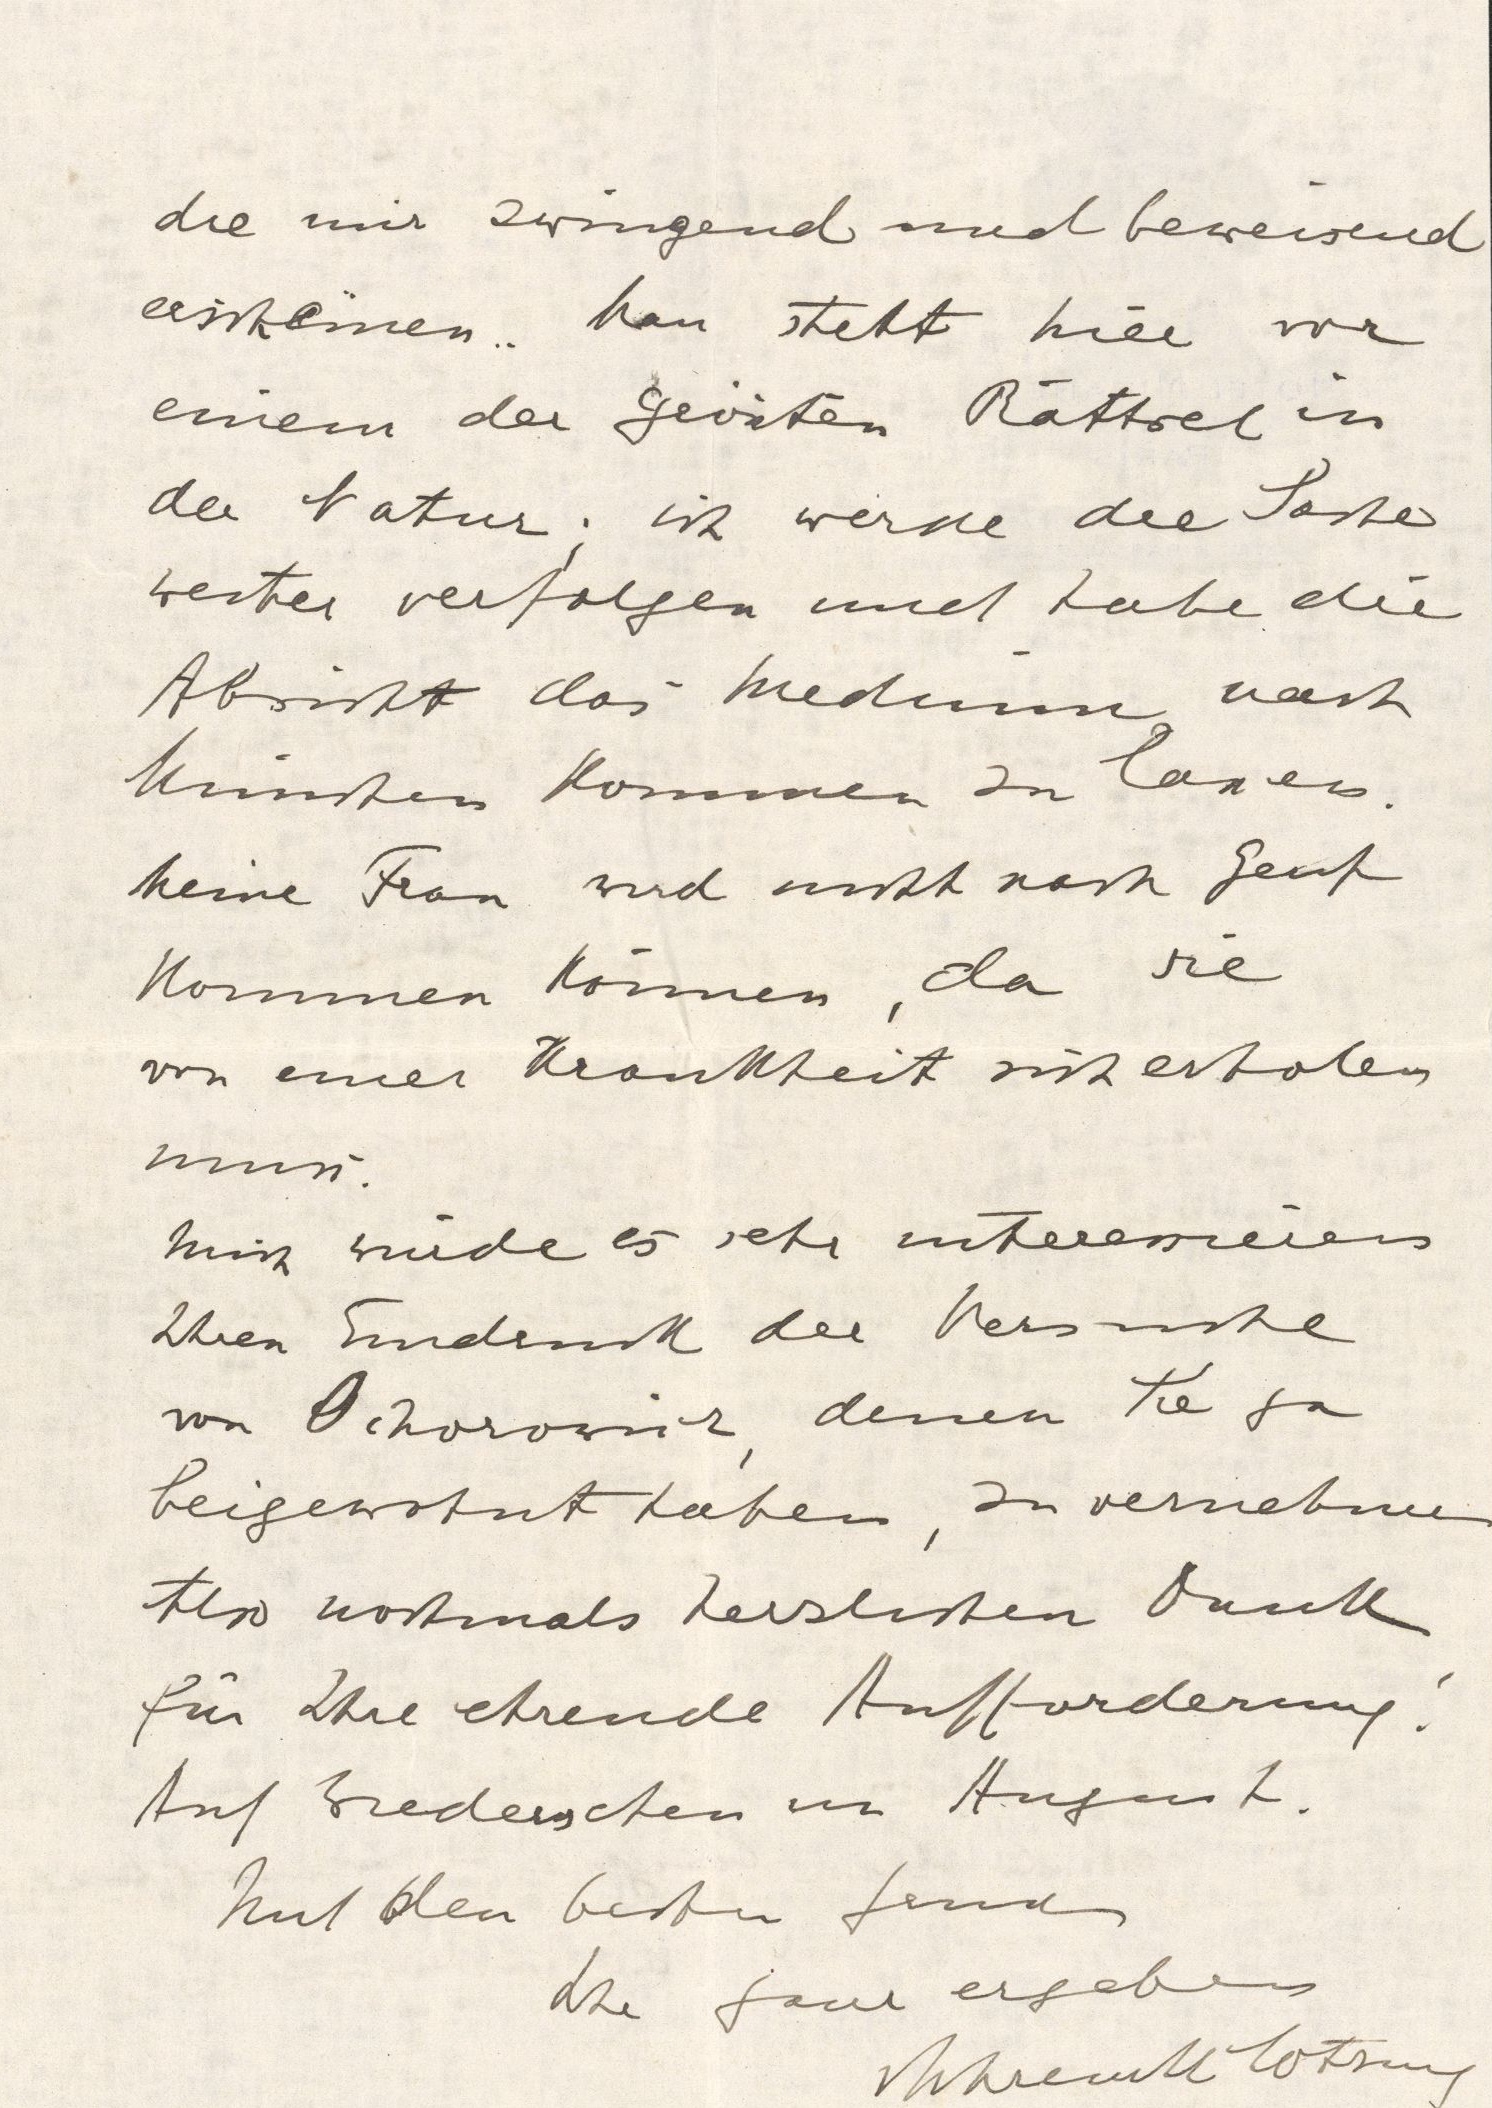 die mir zwingend und beweisend
erscheinen. Man steht hier vor
einem der grössten Räthsel in
der Natur; ich werde die Sache
weiter verfolgen und habe die
Absicht das Medium nach
München kommen zu lassen.
Meine Frau wird nicht nach Genf
kommen können, da sie
von einer Krankheit sich erholen
muss.
Mich würde es sehr interessieren
Ihren Eindruck der Versuche
von Ochorowicz, denen Sie ja
beigewohnt haben, zu vernehmen
Also nochmals herzlichen Dank
für Ihre ehrende Aufforderung!
Auf Wiedersehen im August.
Mit den besten
Ihr ganz ergebens
Schrenck Notzing